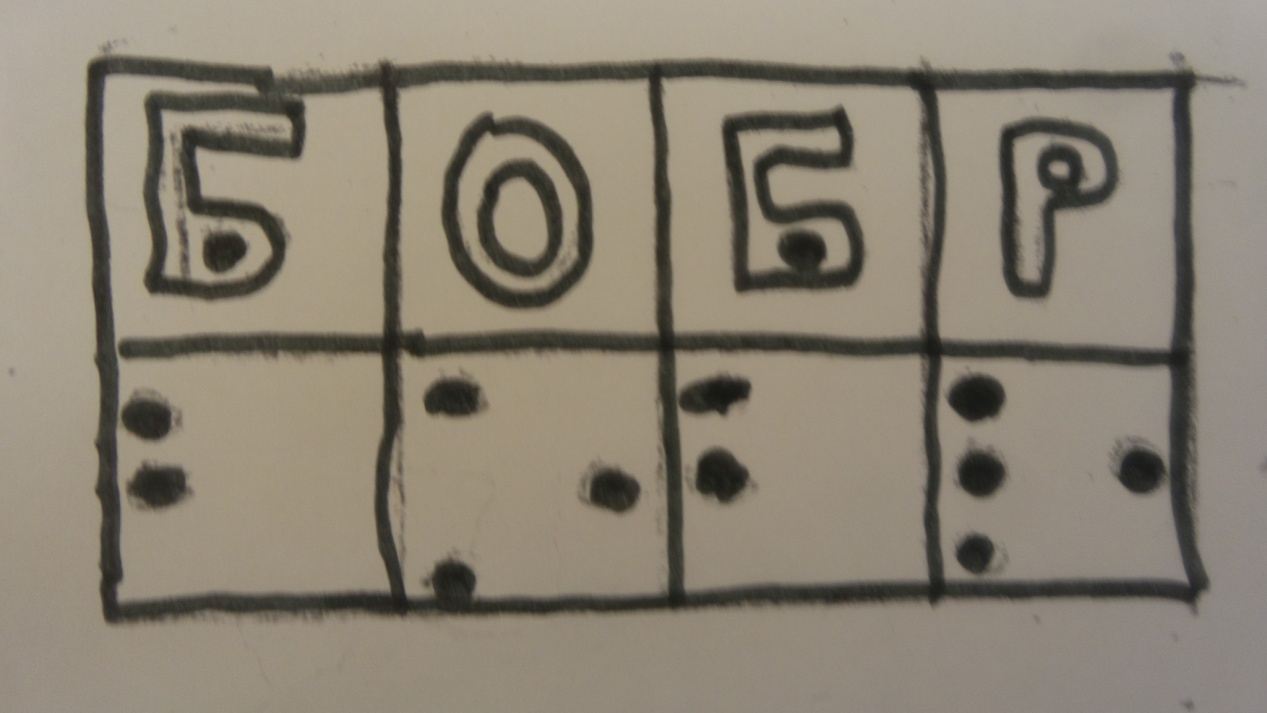 БОБР
⠃⠕⠃⠗